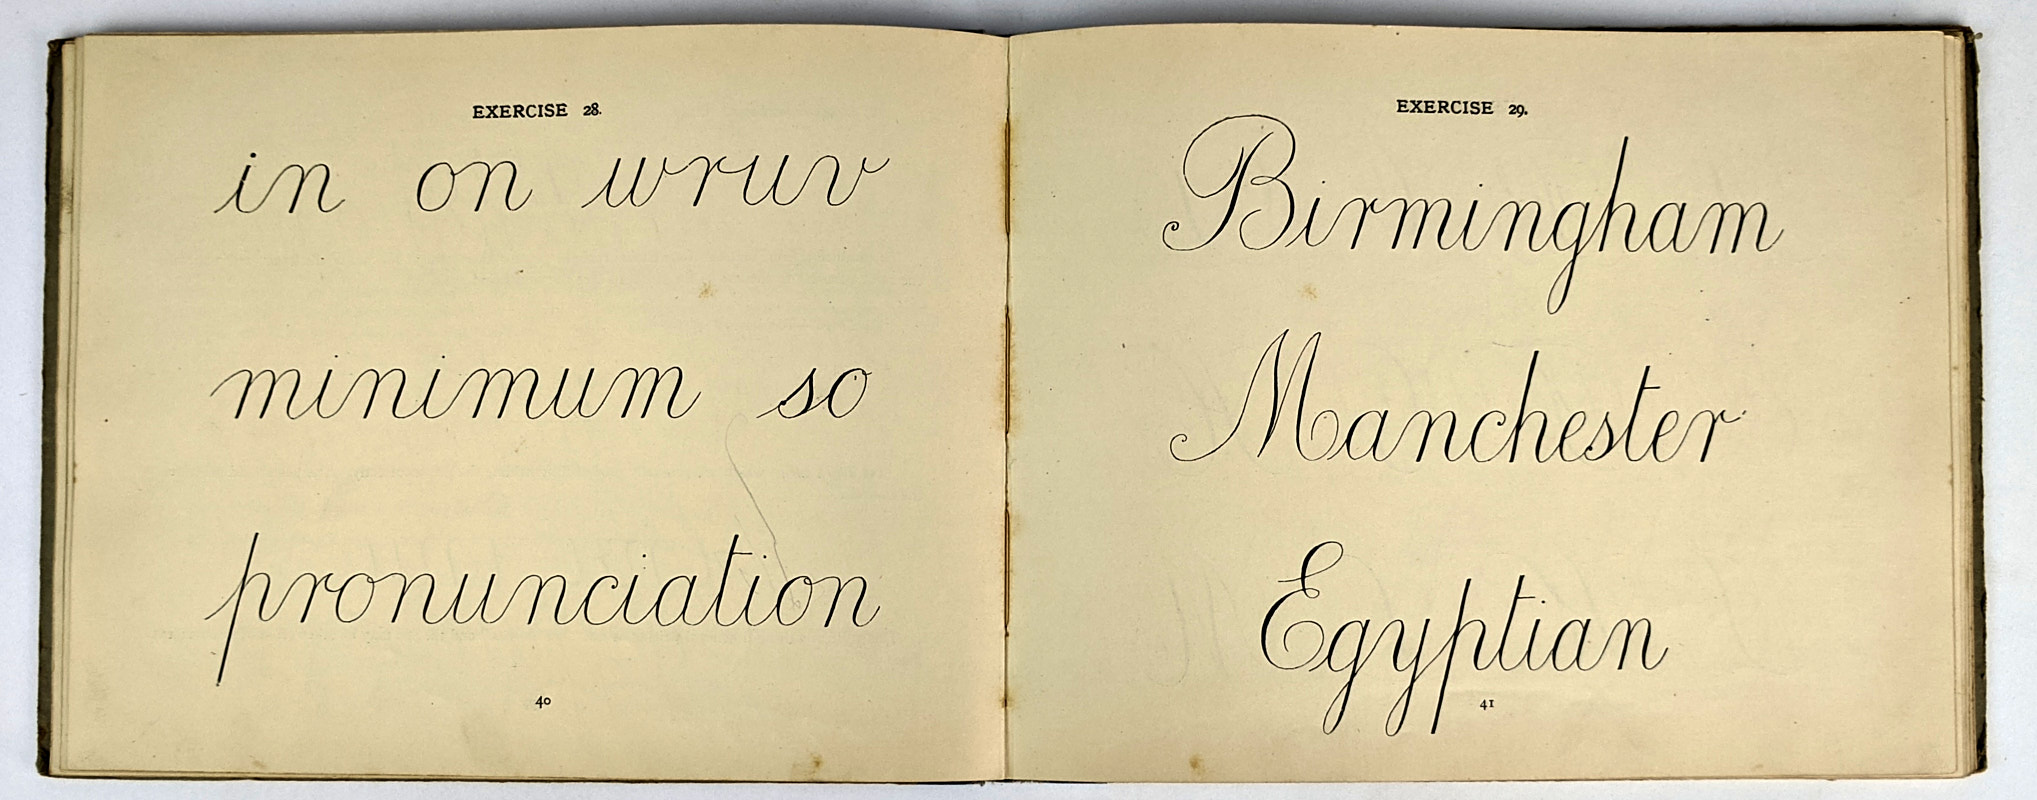 EXERCISE 28.
in on wruv
minimum so
pronunciation
40
EXERCISE 29.
Birmingham
Manchester
Egyptian
41